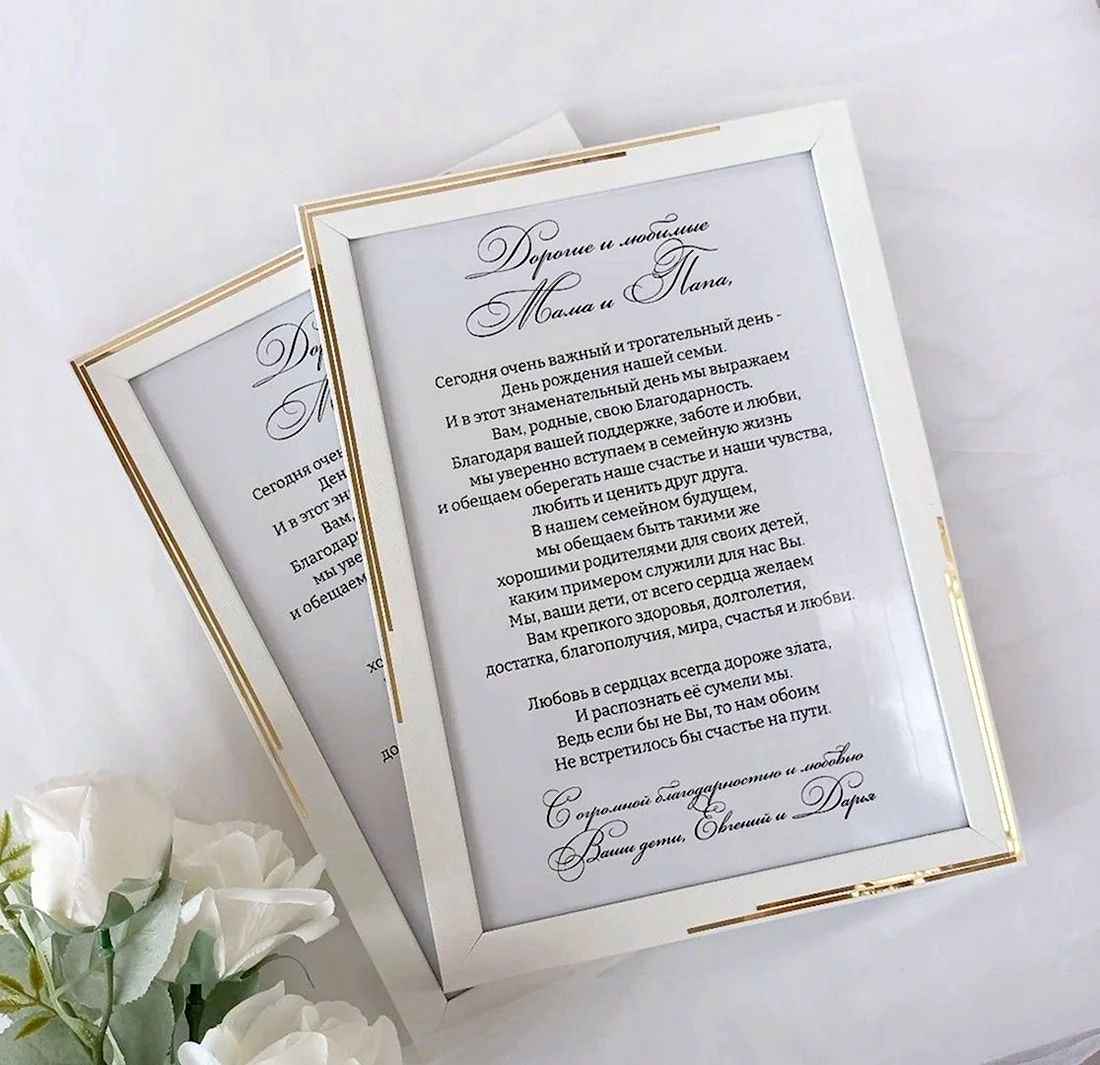 Дорогие и любимые
Мама и Папа,
Сегодня очень важный и трогательный день -
День рождения нашей семьи.
И в этот знаменательный день мы выражаем
Вам, родные, свою Благодарность.
Благодаря вашей поддержке, заботе и любви,
мы уверенно вступаем в семейную жизнь
и обещаем оберегать наше счастье и наши чувства,
любить и ценить друг друга.
В нашем семейном будущем,
мы обещаем быть такими же
хорошими родителями для своих детей,
каким примером служили для нас Вы.
Мы, ваши дети, от всего сердца желаем
Вам крепкого здоровья, долголетия,
достатка, благополучия, мира, счастья и любви.
Любовь в сердцах всегда дороже злата,
И распознать её сумели мы.
Ведь если бы не Вы, то нам обоим
Не встретилось бы счастье на пути.
С огромной благодарностью и любовью
Ваши дети, Евгений и Дарья
Сегодня
И в этот
Вам,
и обещаем